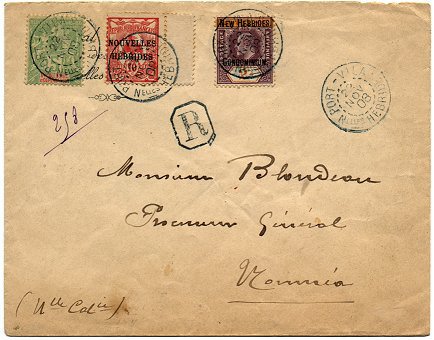 NOUVELLES
HÉBRIDES
10
NEW HEBRIDES
CONDOMINIUM
PORT-VILA
NOV
08
Nlles HÉBRIDES
253
R
Monsieur Blondeau
Procureur Général
Nouméa
(Nlle Cdie)